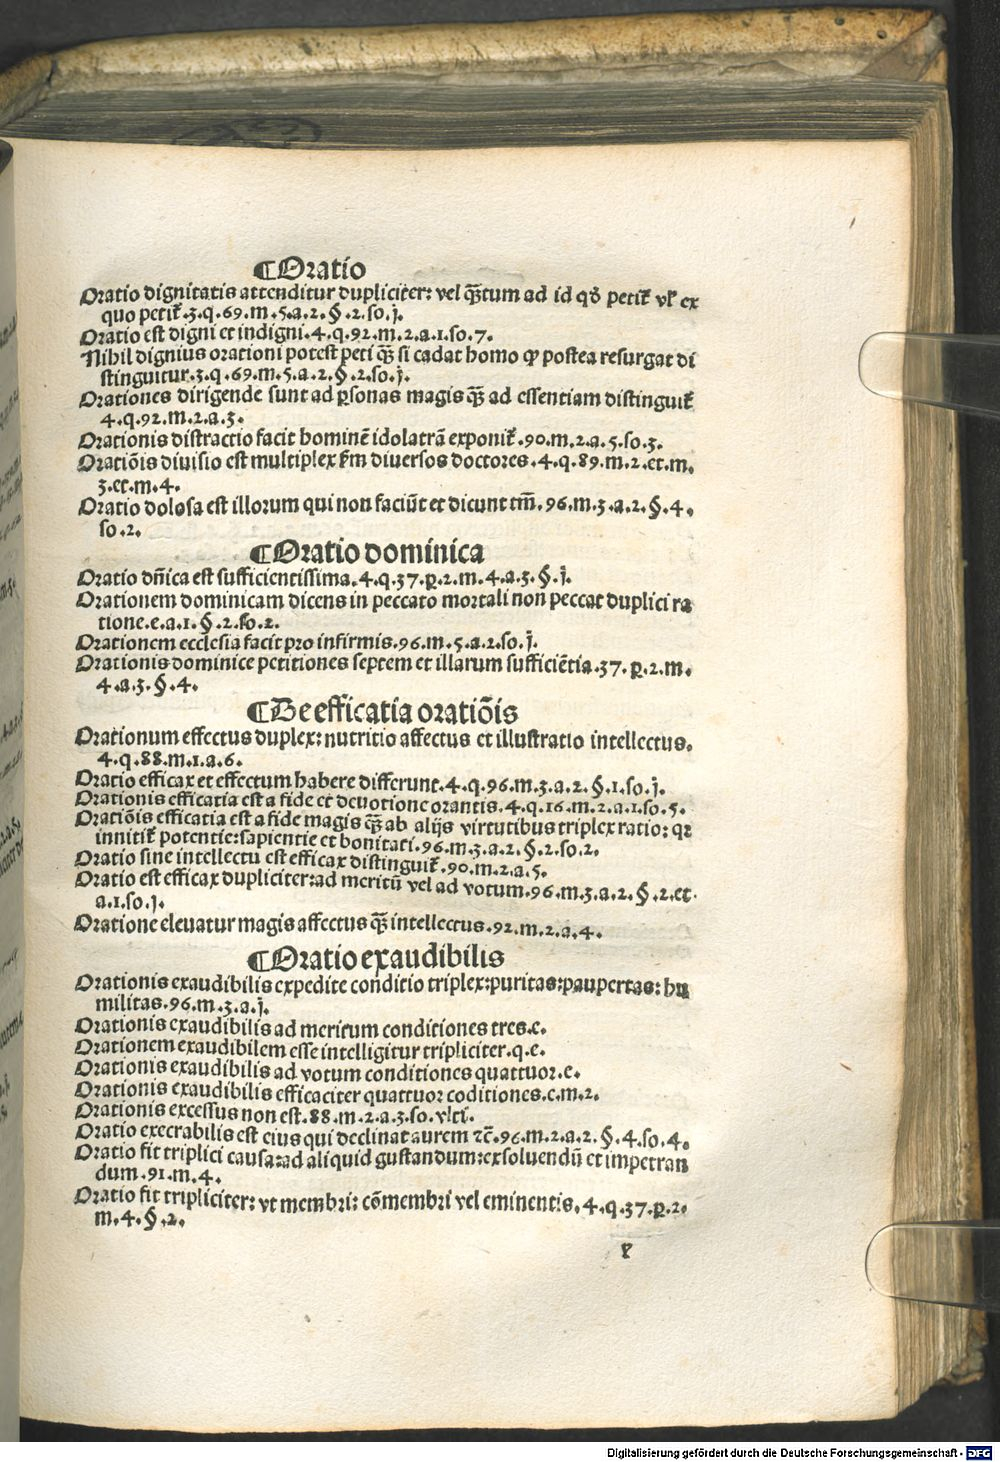 ¶Oratio
Oratio dignitatis attenditur dupliciter: vel q̄ꝫtum ad id qđ petit᷑ vł ex
quo petit᷑.3.q.69.m.5.a.2.§.2.so.j.
Oratio est digni et indigni.4.q.92.m.2.a.1.so.7.
Nihil dignius orationi potest peti q̄ꝫ si cadat homo ꝙ postea resurgat di
stinguitur.3.q.69.m.5.a.2.§.2.so.j.
Orationes dirigende sunt ad ꝑsonas magis q̄ꝫ ad essentiam distinguit᷑
4.q.92.m.2.a.3.
Orationis distractio facit hominē idolatrā exponit᷑.90.m.2.a.5.so.3.
Oratiōis diuisio est multiplex ẜm diuersos doctores.4.q.89.m.2.et.m.
3.et.m.4.
Oratio dolosa est illorum qui non faciūt et dicunt tm̄.96.m.3.a.2.§.4.
so.2.
¶Oratio dominica
Oratio dn̄ica est sufficientissima.4.q.37.p.2.m.4.a.3.§.j.
Orationem dominicam dicens in peccato mortali non peccat duplici ra
tione.e.a.1.§.2.so.2.
Orationem ecclesia facit pro infirmis.96.m.5.a.2.so.j.
Orationis dominice petitiones septem et illarum sufficiētia.37.p.2.m.
4.a.3.§.4.
¶De efficatia oratiōis
Orationum effectus duplex: nutritio affectus et illustratio intellectus.
4.q.88.m.1.a.6.
Oratio efficax et effectum habere differunt.4.q.96.m.3.a.2.§.1.so.j.
Orationis efficatia est a fide et deuotione orantis.4.q.16.m.2.a.1.so.5.
Oratiōis efficatia est a fide magis q̄ꝫ ab alijs virtutibus triplex ratio: qꝛ
innitit᷑ potentie: sapientie et bonitati.96.m.3.a.2.§.2.so.2.
Oratio sine intellectu est efficax distinguit᷑.90.m.2.a.5.
Oratio est efficax dupliciter: ad meritū vel ad votum.96.m.3.a.2.§.2.et.
a.1.so.j.
Oratione eleuatur magis affectus q̄ꝫ intellectus.92.m.2.a.4.
¶Oratio exaudibilis
Orationis exaudibilis expedite conditio triplex: puritas: paupertas: hu
militas.96.m.3.a.j.
Orationis exaudibilis ad meritum conditiones tres.e.
Orationem exaudibilem esse intelligitur tripliciter.q.e.
Orationis exaudibilis ad votum conditiones quattuor.e.
Orationis exaudibilis efficaciter quattuor coditiones.e.m.2.
Orationis excessus non est.88.m.2.a.3.so.vlti.
Oratio execrabilis est eius qui declinat aurem ⁊c̄.96.m.2.a.2.§.4.so.4.
Oratio fit triplici causa: ad aliquid gustandum: exsoluendū et impetran
dum.91.m.4.
Oratio fit tripliciter: vt membri: cōmembri vel eminentis.4.q.37.p.2.
m.4.§.2.
Digitalisierung gefördert durch die Deutsche Forschungsgemeinschaft - DFG